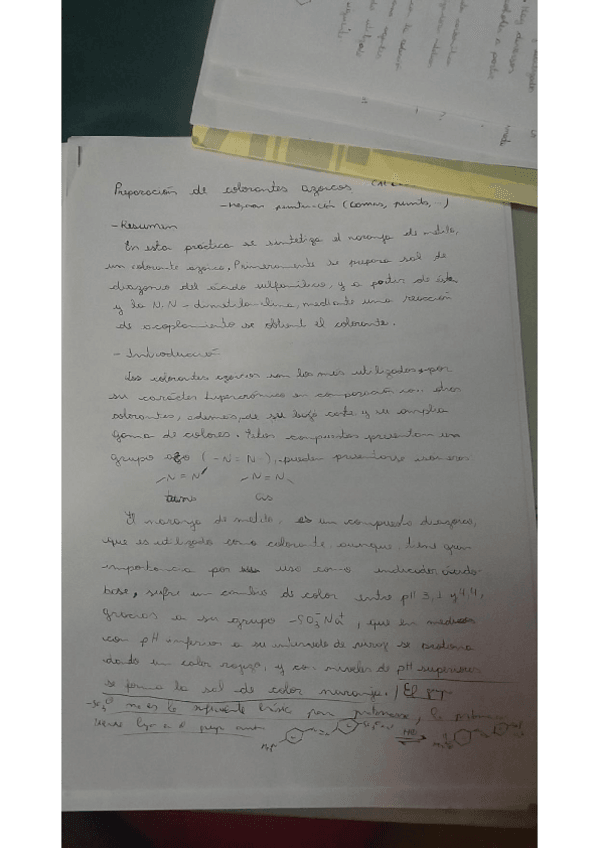 Preparación de colorantes azoicos
-Mejorar puntuación (comas, puntos, ..)
-Resumen
En esta práctica se sintetiza el naranja de metilo,
un colorante azoico. Primeramente se prepara sal de
diazonio del ácido sulfanílico, y a partir de ésta
y la N,N-dimetilanilina, mediante una reacción
de acoplamiento se obtiene el colorante.
- Introducció
Los colorantes azoicos son los más utilizados por
su carácter hipercrómico en comparación con otros
colorantes, además de su bajo coste y su amplia
gama de colores. Estos compuestos presentan un
grupo azo (-N=N-), pueden presentarse isómeros
-N=N- -N=N-
trans cis
El naranja de metilo, es un compuesto diazoico,
que es utilizado como colorante aunque, tiene gran
importancia por uso como indicador ácido
base, sufre un cambio de color entre pH 3,1 y 4,4,
gracias a su grupo -SO3⁻Na⁺, que en medios
con pH inferior a su intervalo de viraje se protona
dando un color rojizo, y con niveles de pH superiores
se forma la sal de color naranja. El grupo
no es lo suficiente básico para protonarse, la
tiene lugar en el grupo